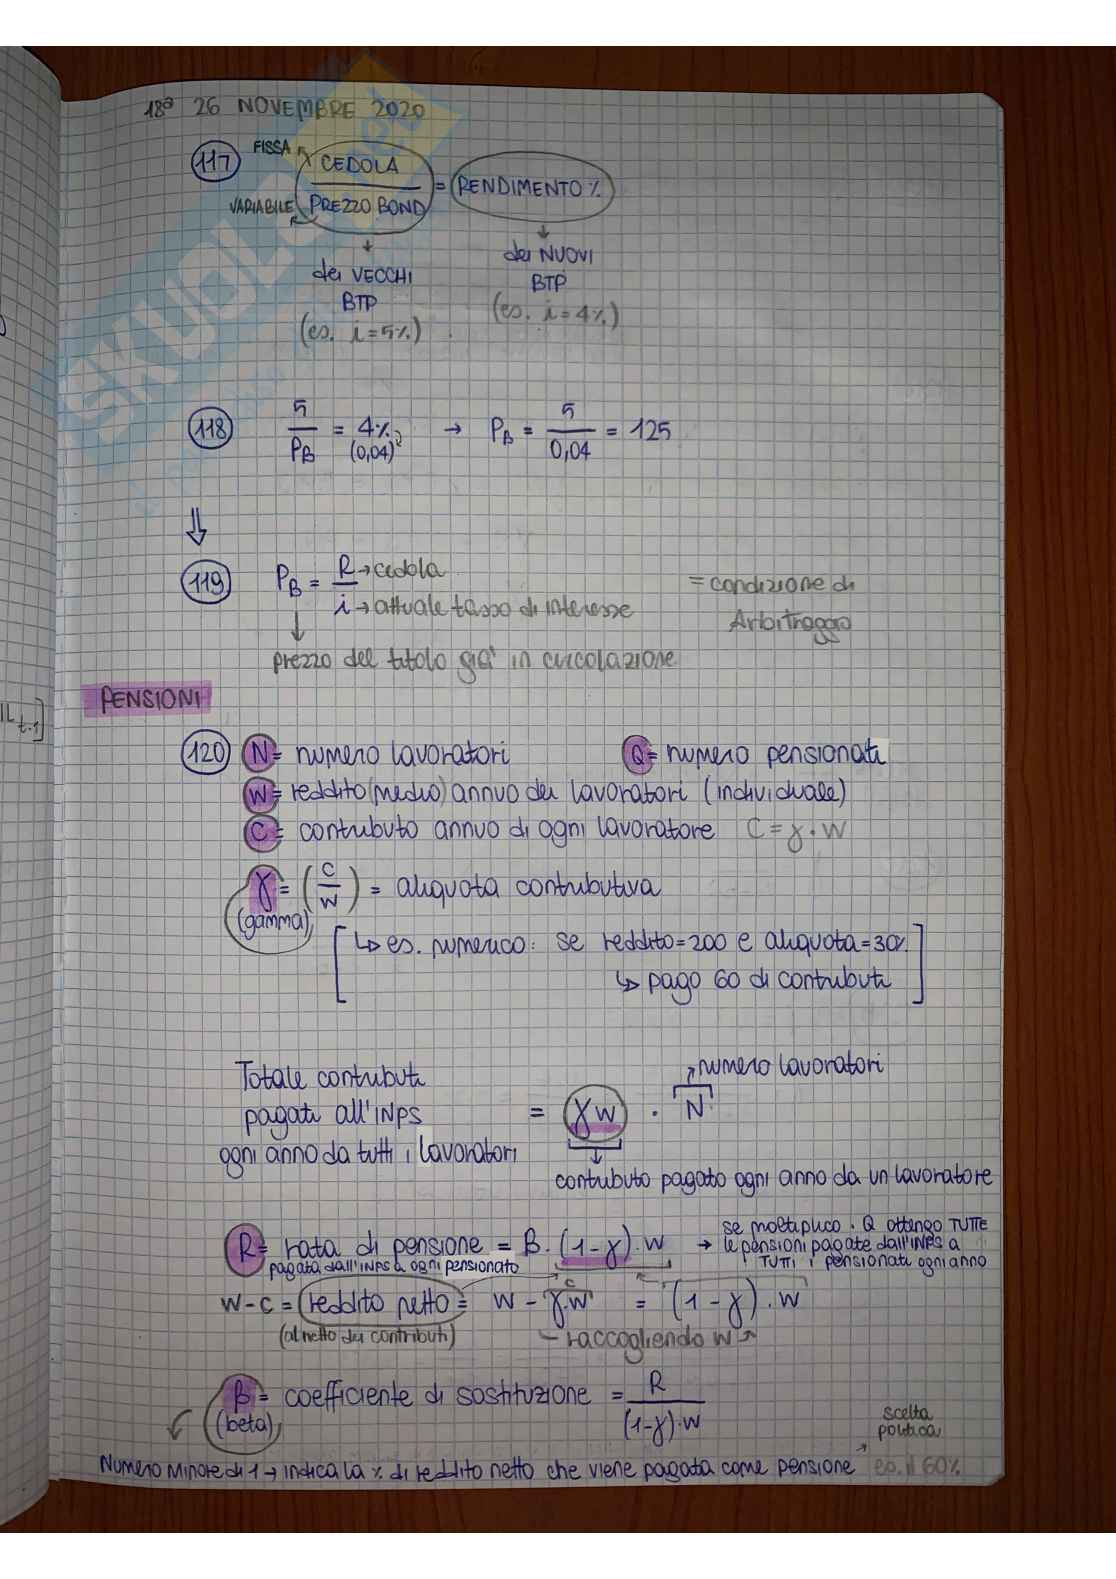 18ª 26 NOVEMBRE 2020
117 FISSA CEDOLA
VARIABILE PREZZO BOND = RENDIMENTO %
dei VECCHI BTP (es. i=5%)
dei NUOVI BTP (es. i=4%)
118 5/PB = 4% (0,04) → PB = 5/0,04 = 125
⇓
119 PB = R → cedola / i → attuale tasso di interesse = condizione di Arbitraggio
prezzo del titolo già in circolazione
PENSIONI
120 N = numero lavoratori Q = numero pensionati
W = reddito (medio) annuo dei lavoratori (individuale)
C = contributo annuo di ogni lavoratore C = γ · W
γ = (C/W) = aliquota contributiva
(gamma)
↳ es. numerico: se reddito=200 e aliquota=30%
↳ pago 60 di contributi
Totale contributi
pagati all'INPS
ogni anno da tutti i lavoratori = γW · N
numero lavoratori
contributo pagato ogni anno da un lavoratore
R = rata di pensione = B · (1-γ) · W → se moltiplico · Q ottengo TUTTE
pagata dall'INPS a ogni pensionato
le pensioni pagate dall'INPS a
TUTTI i pensionati ogni anno
W - C = reddito netto = W - γ·W = (1-γ) · W
C
(al netto dei contributi) raccogliendo W
β = coefficiente di sostituzione = R/(1-γ)·W
(beta)
scelta politica
Numero Minore di 1 → indica la % di reddito netto che viene pagata come pensione es. il 60%
SKUOLA.net